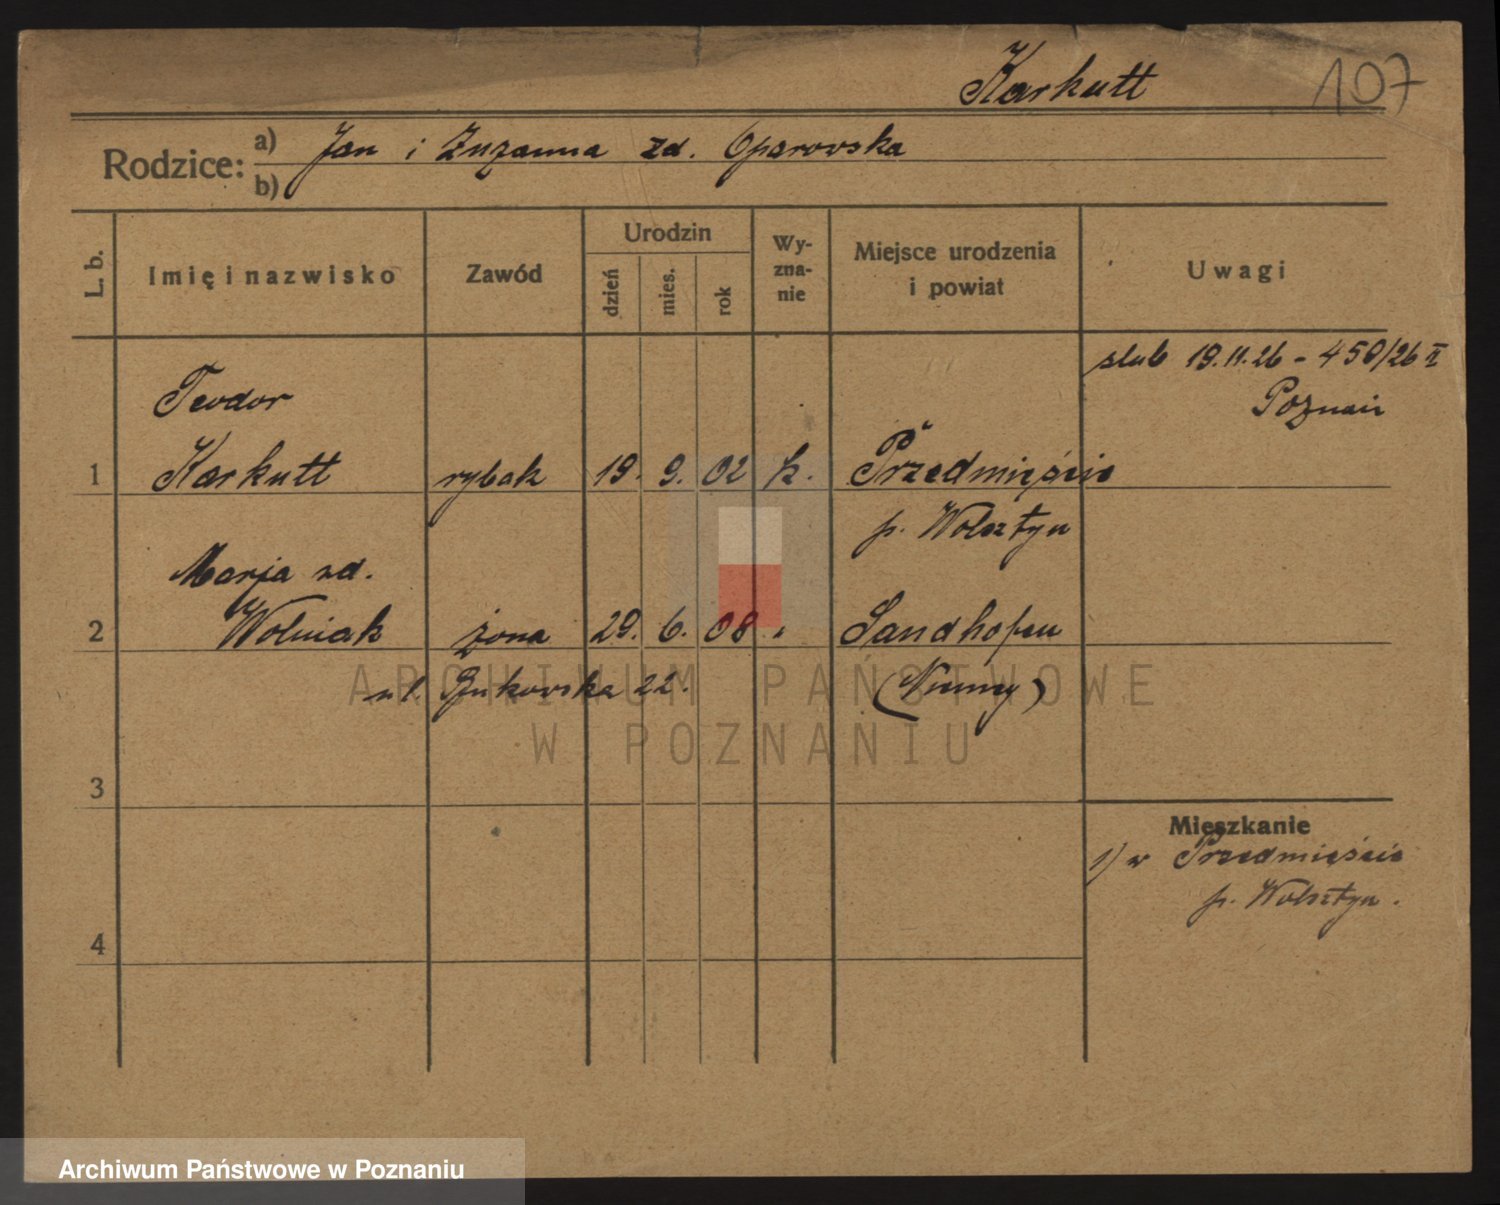 Karkutt 107
Rodzice: a) Jan i Zuzanna zd. Oparowska
b)
L. b. Imię i nazwisko Zawód Urodzin dzień mies. rok Wy-zna-nie Miejsce urodzenia i powiat Uwagi
ślub 19.11.26 - 459/26 II
Poznań
Teodor
1 Karkutt rybak 19. 9. 02 k. Przedmieście
p. Wolsztyn
Marja zd.
2 Woliniak żona 29. 6. 08 " Sandhofen
ul. Bukowska 22. (Niemcy)
ARCHIWUM PAŃSTWOWE
W POZNANIU
3
Mieszkanie
1) w Przedmieście
p. Wolsztyn.
4
Archiwum Państwowe w Poznaniu